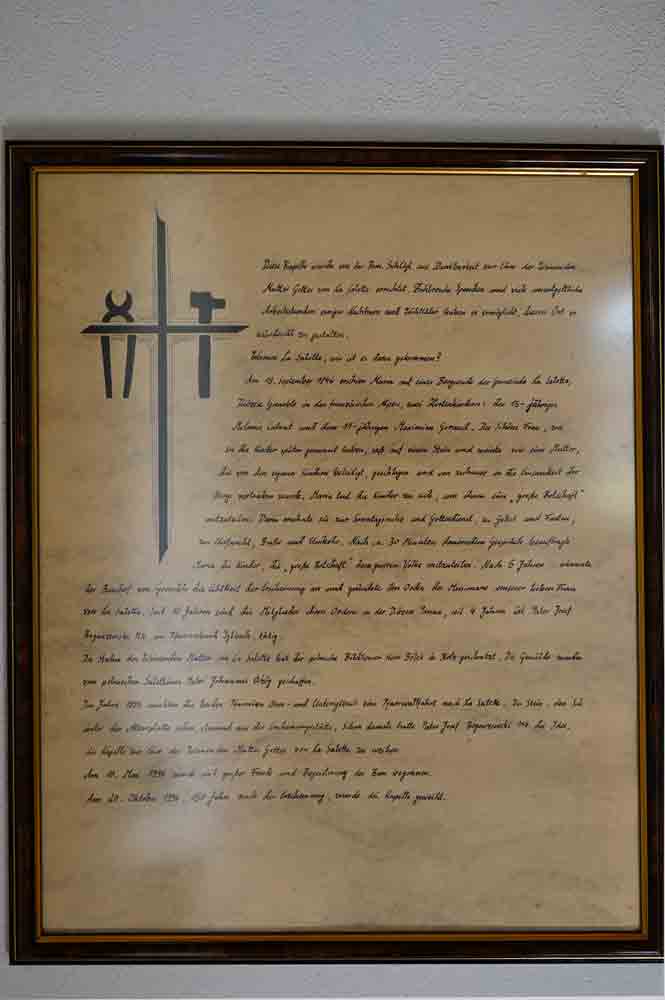 Diese Kapelle wurde von der Fam. Schlögl aus Dankbarkeit zur Ehre der Weinenden
Mutter Gottes von La Salette errichtet. Zahlreiche Spenden und viele unentgeltliche
Arbeitsstunden einiger Nachbarn und Wohltäter haben es ermöglicht, diesen Ort so
zu gestalten.
La Salette, wie ist es dazu gekommen?
Am 19. September 1846 erschien Maria auf einer Bergweide der Gemeinde La Salette,
Diözese Grenoble in den französischen Alpen, zwei Hirtenkindern: der 15-jährigen
Melanie Calvat und dem 11-jährigen Maximin Giraud. Die Schöne Frau, wie
sie die Kinder später genannt haben, saß auf einem Stein und weinte wie eine Mutter,
die von den eigenen Kindern beleidigt, geschlagen und von zuhause in die Einsamkeit der
Berge vertrieben wurde. Maria lud die Kinder zu sich, um ihnen eine "große Botschaft"
mitzuteilen. Darin mahnte sie zur Sonntagsruhe und Gottesdienst, zu Gebet und Fasten,
zur Ehrfurcht, Buße und Umkehr. Nach ca. 30 Minuten dauerndem Gespräch beauftragte
Maria die Kinder, die "große Botschaft" dem ganzen Volke mitzuteilen. Nach 5 Jahren erkannte
der Bischof von Grenoble die Echtheit der Erscheinung an und gründete den Orden der Missionare unserer Lieben Frau
von La Salette. Seit 10 Jahren sind die Mitglieder dieses Ordens in der Diözese tätig, seit 4 Jahren ist Pater Josef
MS im Pfarrverband tätig.
Die Statue der Weinenden Mutter von La Salette hat der polnische Bildhauer Herr in Holz geschnitzt. Die Gemälde wurden
vom polnischen Salettiner Pater Johannes geschaffen.
Im Jahre machten die beiden Pfarreien Ober- und eine Pfarrwallfahrt nach La Salette. Der Stein, den Sie
unter der Altarplatte sehen, stammt aus der Erscheinungsstätte. Schon damals hatte Pater Josef MS die Idee,
die Kapelle zur Ehre der Weinenden Mutter Gottes von La Salette zu weihen.
Am 10. Mai 1996 wurde mit großer Freude und Begeisterung der Bau begonnen.
Am 20. Oktober 1996, 150 Jahre nach der Erscheinung, wurde die Kapelle geweiht.